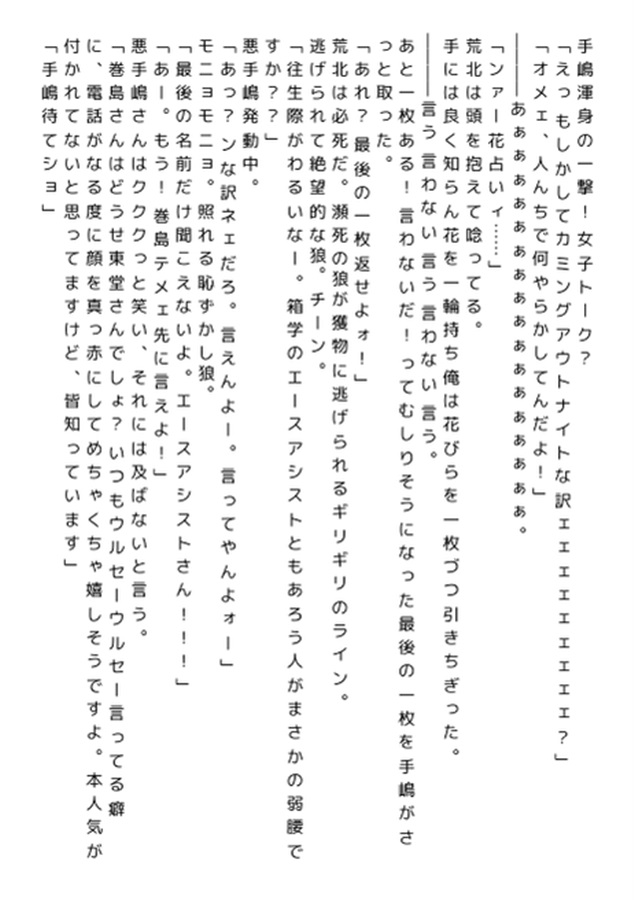 手嶋渾身の一撃！女子トーク？
「えっもしかしてカミングアウトナイトな訳ェェェェェェェェェ？」
「オメェ、人んちで何やらかしてんだよ！」
――――あぁぁぁぁぁぁぁぁぁぁぁぁぁぁぁぁぁぁ。
「ンァー花占いィ……」
荒北は頭を抱えて唸ってる。
手には良く知らん花を一輪持ち俺は花びらを一枚づつ引きちぎった。
――――言う言わない言う言わない言う。
あと一枚ある！言わないだ！ってむしりそうになった最後の一枚を手嶋がさ
っと取った。
「あれ？最後の一枚返せよォ！」
荒北は必死だ。瀕死の狼が獲物に逃げられるギリギリのライン。
逃げられて絶望的な狼。チーン。
「往生際がわるいなー。箱学のエースアシストともあろう人がまさかの弱腰で
すか？？」
悪手嶋発動中。
「あっ？ンな訳ネェだろ。言えんよー。言ってやんよォー」
モニョモニョ。照れる恥ずかし狼。
「最後の名前だけ聞こえないよ。エースアシストさん！！！」
「あー。もう！巻島テメェ先に言えよ！」
悪手嶋さんはクククっと笑い、それには及ばないと言う。
「巻島さんはどうせ東堂さんでしょ？いつもウルセーウルセー言ってる癖
に、電話がなる度に顔を真っ赤にしてめちゃくちゃ嬉しそうですよ。本人気が
付かれてないと思ってますけど、皆知っています」
「手嶋待てショ」